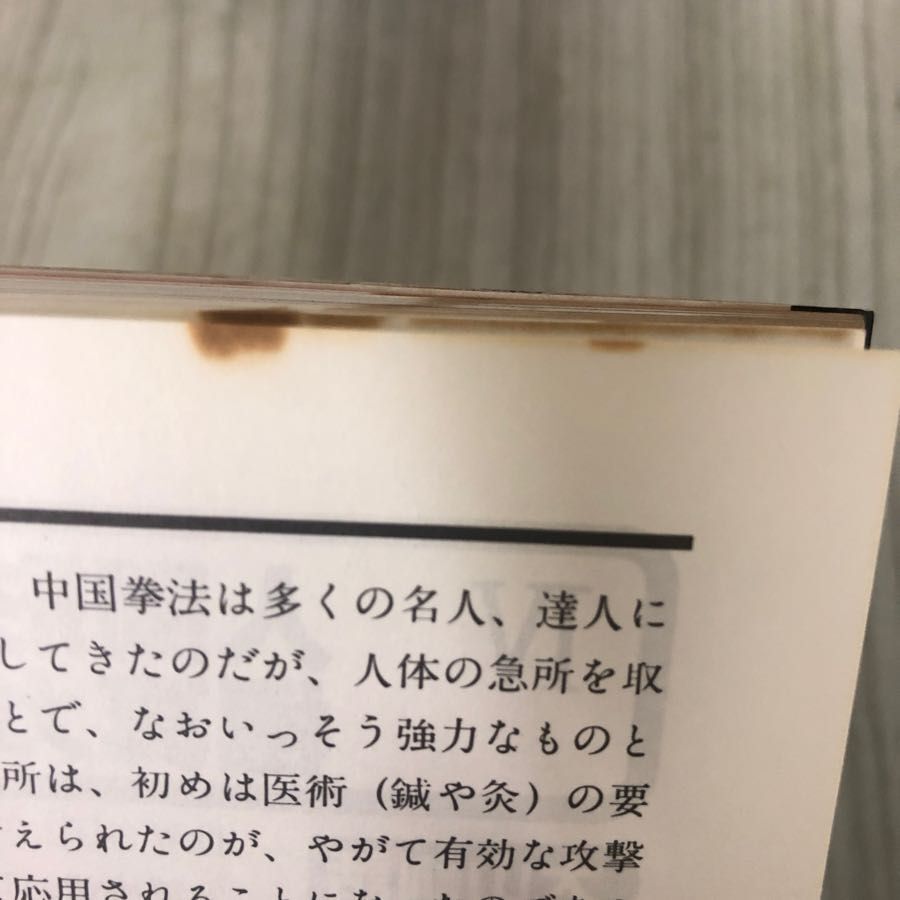 中国拳法は多くの名人、達人に
してきたのだが、人体の急所を取
とで、なおいっそう強力なものと
所は、初めは医術（鍼や灸）の要
えられたのが、やがて有効な攻撃
応用されることになったのである